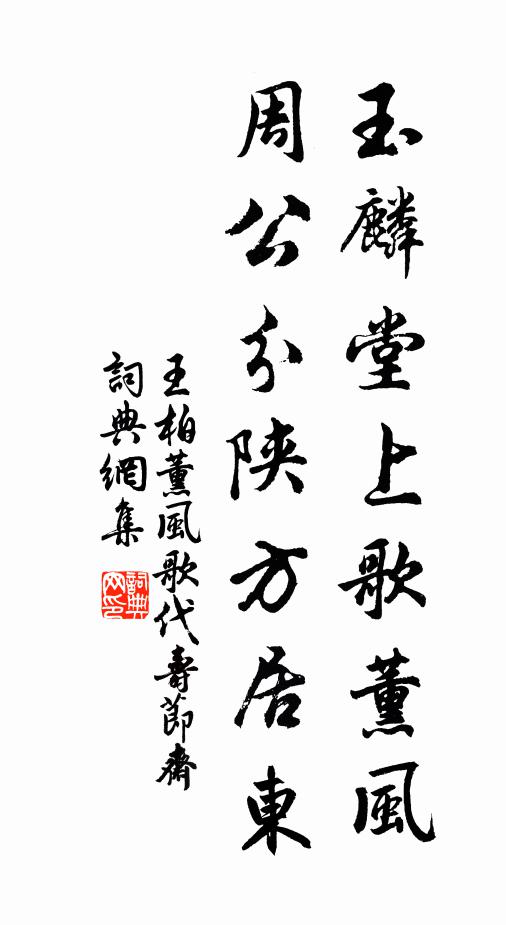 玉麟堂上歌薰風
周公分陝方居東
王柏薰風歌代壽節齋
詞典網集
詞典網印